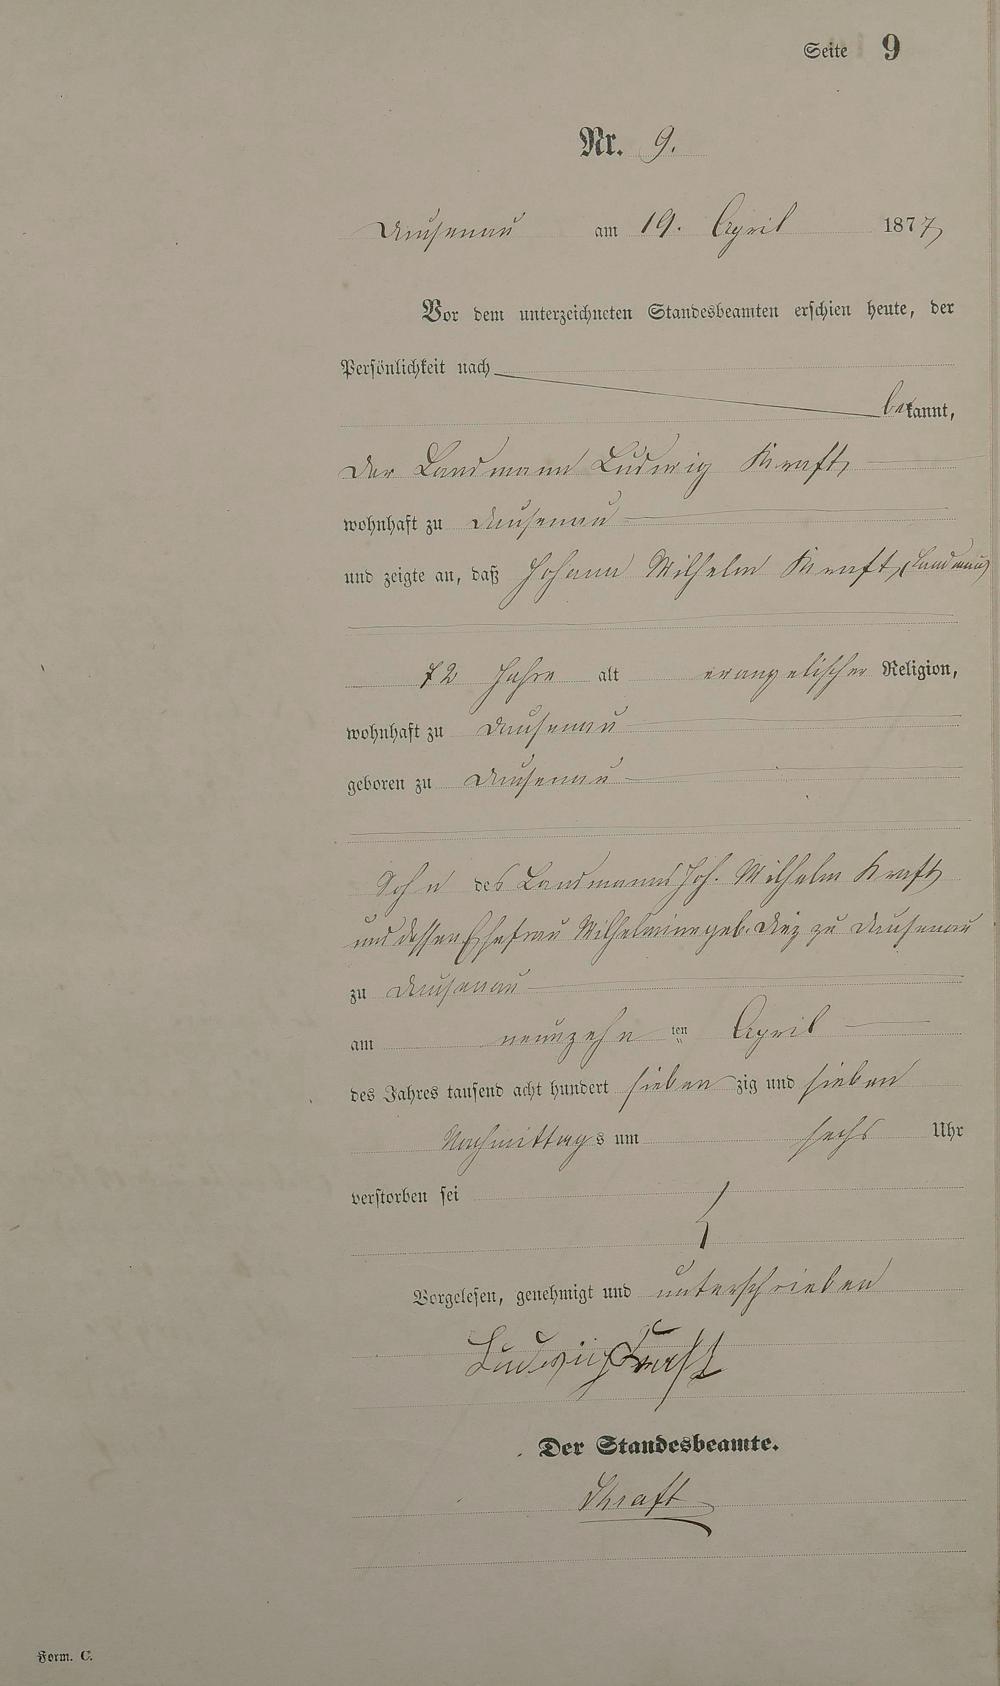 Seite 9
Nr. 9.
Dausenau am 19. April 1877
Vor dem unterzeichneten Standesbeamten erschien heute, der
Persönlichkeit nach
bekannt,
der Landmann Ludwig Kraft,
wohnhaft zu Dausenau
und zeigte an, daß Johann Wilhelm Kraft, Landmann
72 Jahre alt evangelischer Religion,
wohnhaft zu Dausenau
geboren zu Dausenau
Sohn des Landmanns Joh. Wilhelm Kraft
und dessen Ehefrau Wilhelmine geb. Diez zu Dausenau
zu Dausenau
am neunzehn ten April
des Jahres tausend acht hundert sieben zig und sieben
Nachmittags um sechs Uhr
verstorben sei
Vorgelesen, genehmigt und unterschrieben
Ludwig Kraft
Der Standesbeamte.
Kraft
Form. C.